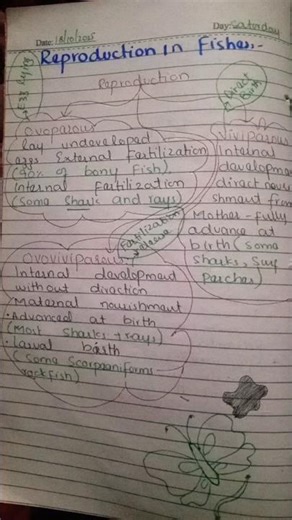 Date: 18/10/2025 Day: Saturday
Reproduction in Fishes:-
Reproduction
Egg laying
Direct Birth
Ovoparous
Lay undeveloped
eggs External Fertilization
(90% of bony Fish).
Internal Fertilization
(Some Shark and rays)
Viviparous
Internal
development
direct nouri
shment from
Mother-fully
advance at
birth (some
sharks, surf
Perches)
Fertilization
Ovoviviparous
Internal development
without direction
Maternal nourishment
• Advanced at birth
(Most sharks + rays)
• Larval birth
(Some Scorpaniforms
rockfish)